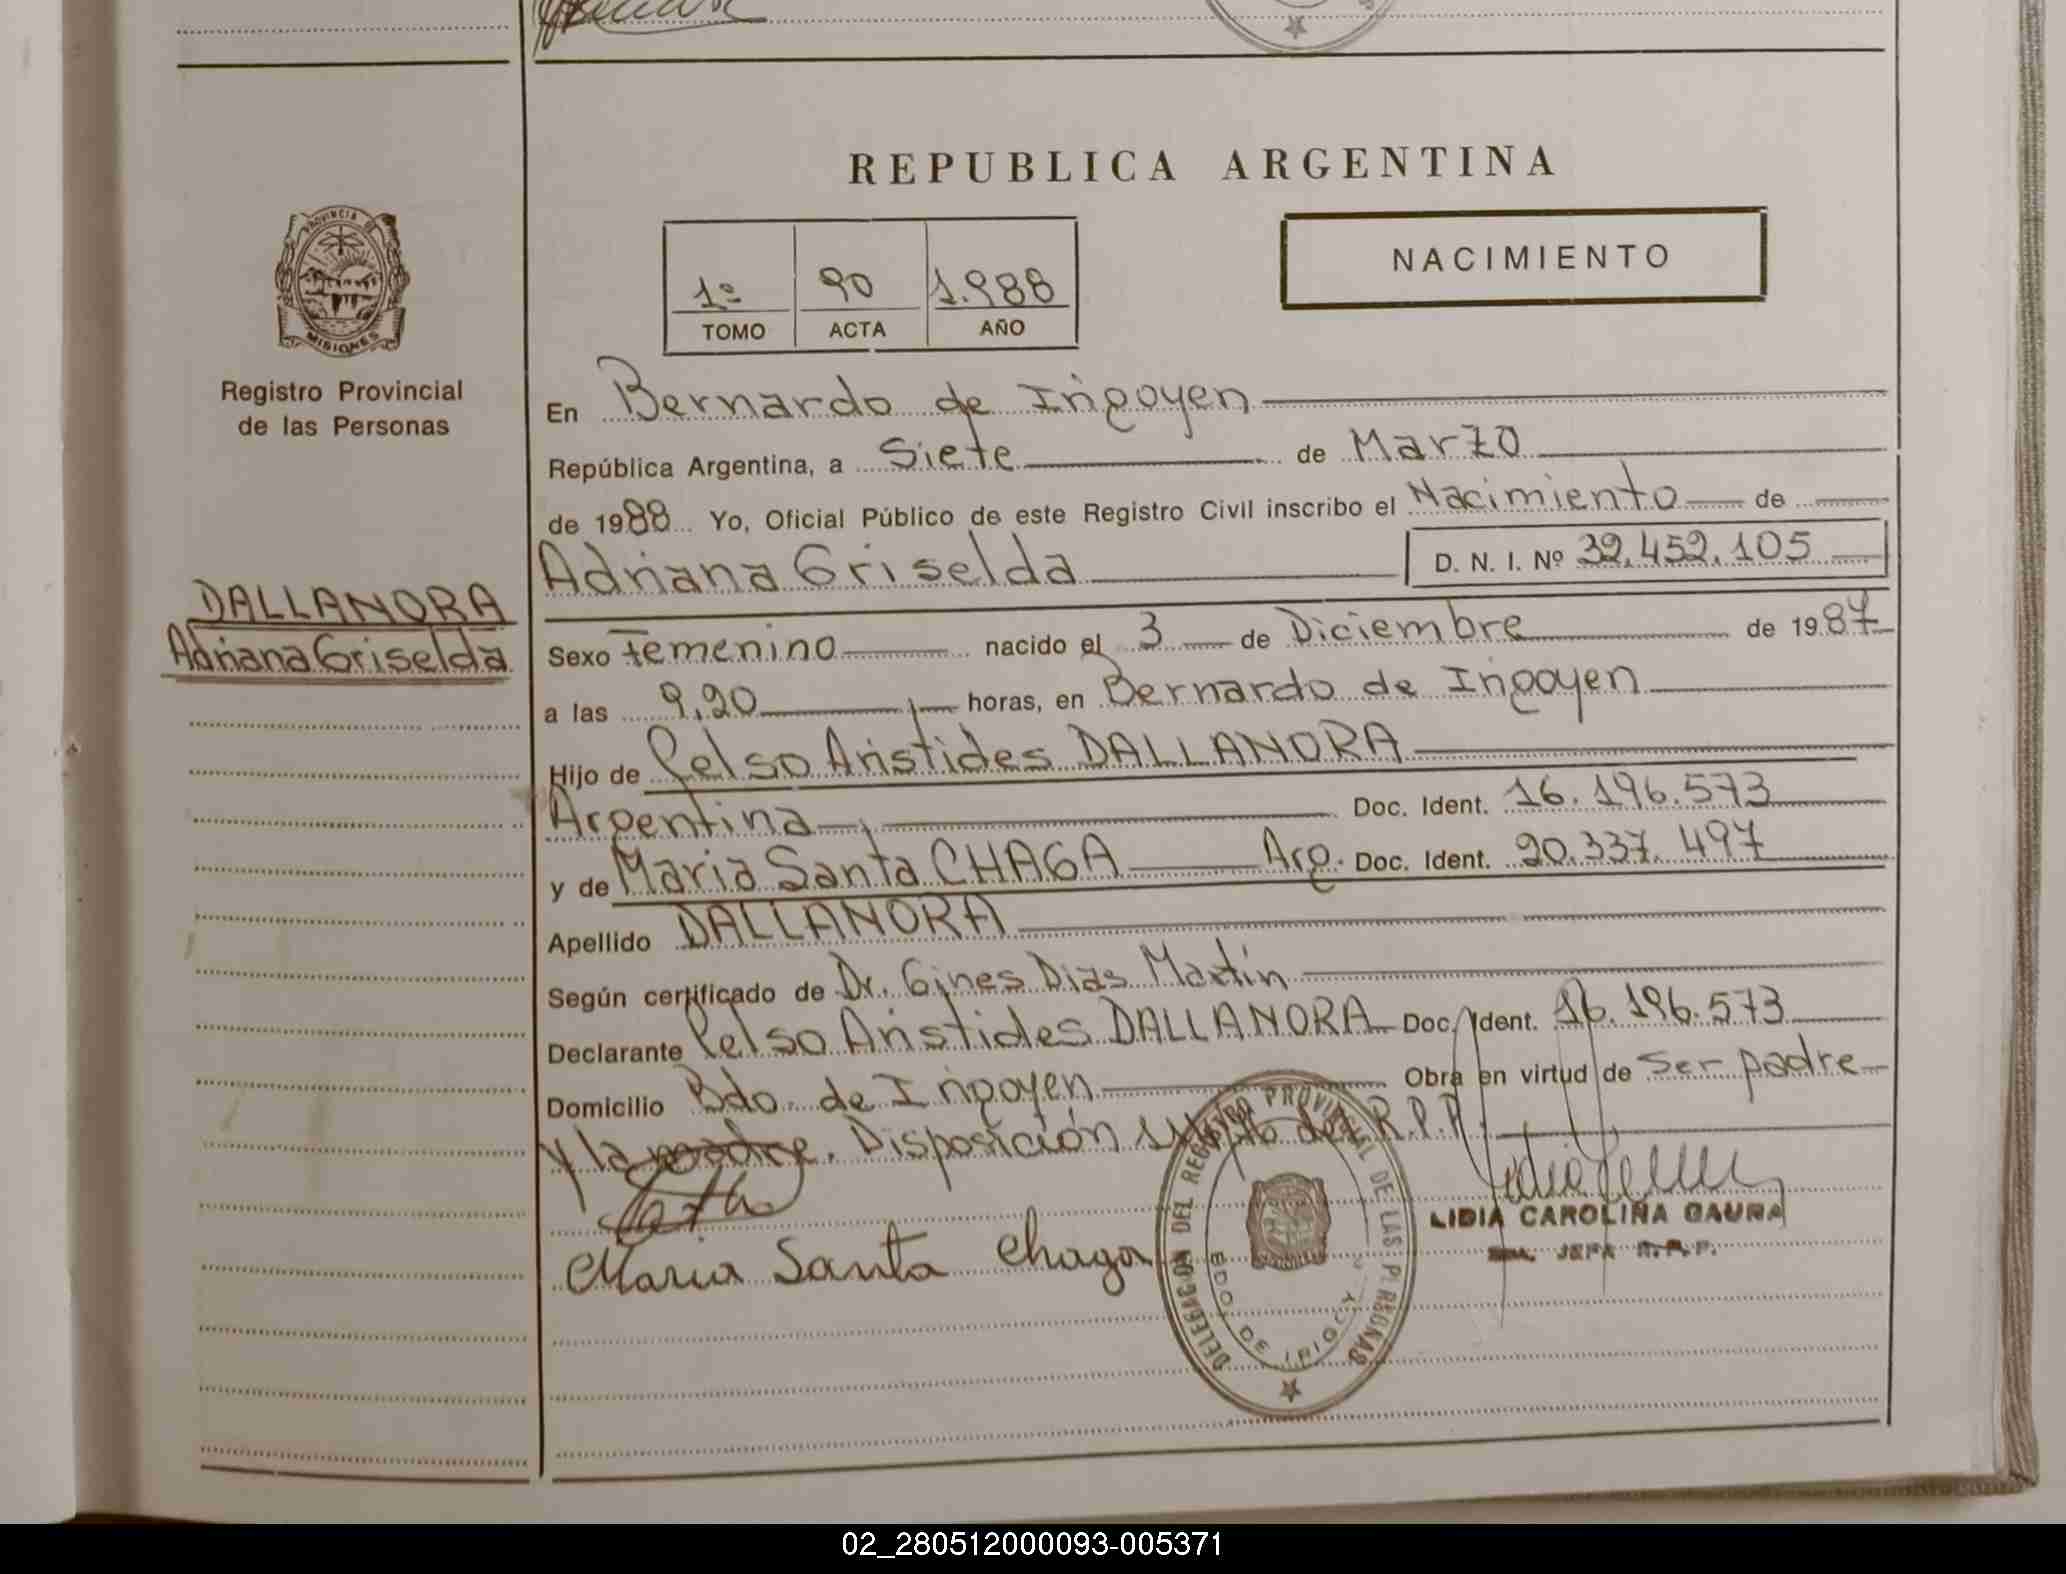 REPUBLICA ARGENTINA
PROVINCIA DE
MISIONES
Registro Provincial
de las Personas
1º 90 1.988
TOMO ACTA AÑO
NACIMIENTO
En Bernardo de Irigoyen
República Argentina, a Siete de Marzo
de 1988 Yo, Oficial Público de este Registro Civil inscribo el Nacimiento de
Adriana Griselda D. N. I. Nº 32.452.105
DALLANORA
Adriana Griselda
Sexo Femenino nacido el 3 de Diciembre de 1987
a las 9,20 horas, en Bernardo de Irigoyen
Hijo de Celso Aristides DALLANORA
Argentina Doc. Ident. 16.196.573
y de Maria Santa CHAGA Arg. Doc. Ident. 20.337.497
Apellido DALLANORA
Según certificado de Dr. Gines Dias Martín
Declarante Celso Aristides DALLANORA Doc. Ident. 16.196.573
Domicilio Bdo. de Irigoyen Obra en virtud de ser padre
y la madre. Disposición del R.P.P.
Maria Santa Chaga
DELEGACION DEL REGISTRO PROVINCIAL DE LAS PERSONAS
BDO. DE IRIGOYEN
LIDIA CAROLINA GAUNA
JEFA R.P.P.
02_280512000093-005371